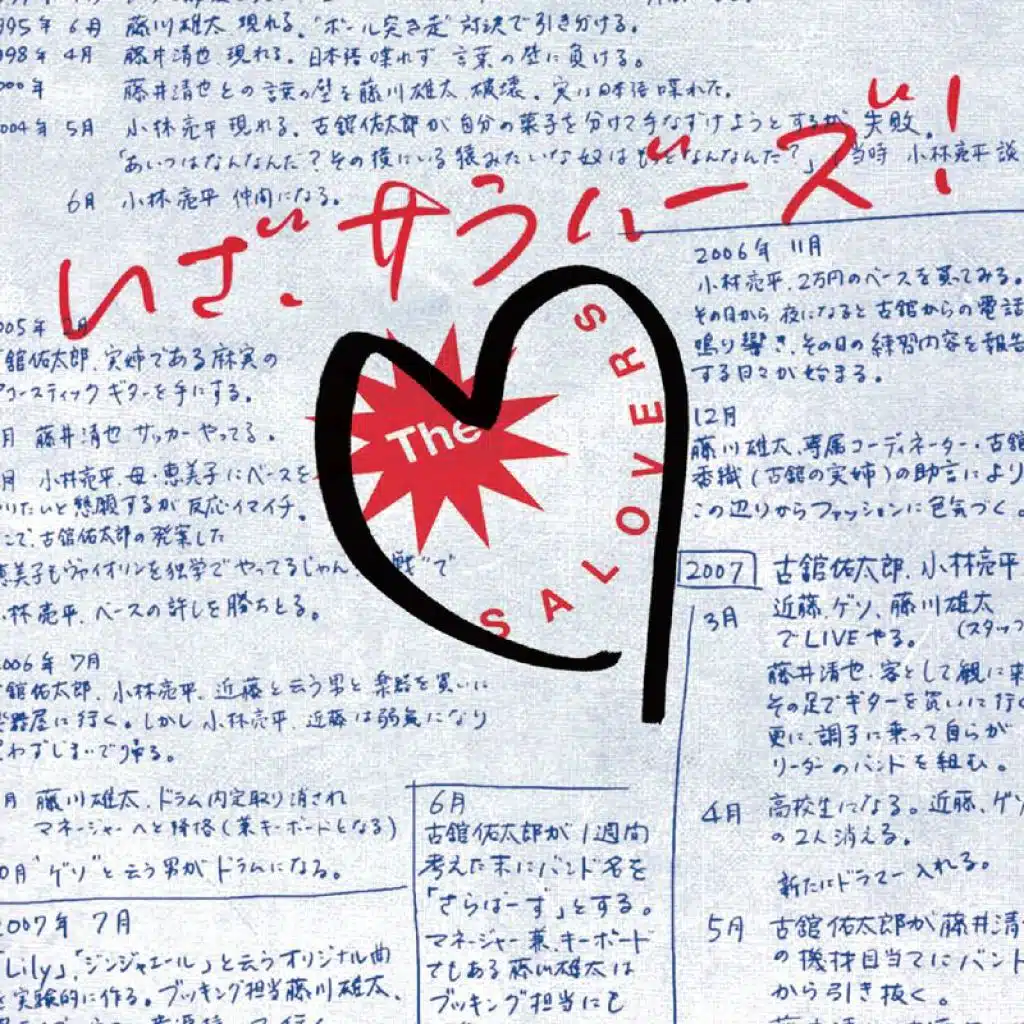 995年 6月 藤川雄太 現れる。"ボール突き走"対決で引き分ける。
998年 4月 藤井清也 現れる。日本語喋れず 言葉の壁に負ける。
000年 藤井清也との言葉の壁を藤川雄太、破壊。実は日本語喋れた。
004年 5月 小林亮平 現れる。古舘佑太郎が自分の菓子を分けて手なずけようとするが 失敗。
「あいつはなんなんだ？その後にいる猿みたいな奴は なんなんだ？」(当時 小林亮平 談
6月 小林亮平 仲間になる。
いざ、サラバーズ！
005年 2月
舘佑太郎、実姉である麻実の
コースティックギターを手にする。
月 藤井清也、サッカーやってる。
月 小林亮平、母・恵美子にベースを
りたいと懇願するが反応イマイチ。
こで、古舘佑太郎の発案した
恵美子もヴァイオリンを独学でやってるじゃん 戦"で
林亮平、ベースの許しを勝ちとる。
006年 7月
舘佑太郎、小林亮平、近藤と云う男と楽器を買いに
楽器屋に行く。しかし小林亮平、近藤は弱気になり
わずじまいで帰る。
月 藤川雄太、ドラム内定取り消され
マネージャーへと降格(兼キーボードとなる)
0月 "ゲソ"と云う男がドラムになる。
2007年 7月
「Lily」、「ジンジャエール」と云うオリジナル曲
を実験的に作る。ブッキング担当藤川雄太、
The
SALOVERS
6月
古舘佑太郎が1週間
考えた末にバンド名を
「さらばーず」とする。
マネージャー兼、キーボード
でもある藤川雄太は
ブッキング担当にも
2006年 11月
小林亮平、2万円のベースを買ってみる。
その日から 夜になると古舘からの電話
鳴り響き、その日の練習内容を報告
する日々が始まる。
12月
藤川雄太、専属コーディネーター・古舘
香織(古舘の実姉)の助言により
この辺りからファッションに色気づく。
2007 古舘佑太郎、小林亮平
3月 近藤、ゲソ、藤川雄太
でLIVEやる。 (スタッフ
藤井清也、客として観に来
その足でギターを買いに行く
更に、調子に乗って自らが
リーダーのバンドを組む。
4月 高校生になる。近藤、ゲソ
の2人消える。
新たにドラマー入れる。
5月 古舘佑太郎が藤井清
の機材目当てにバンド
から引き抜く。